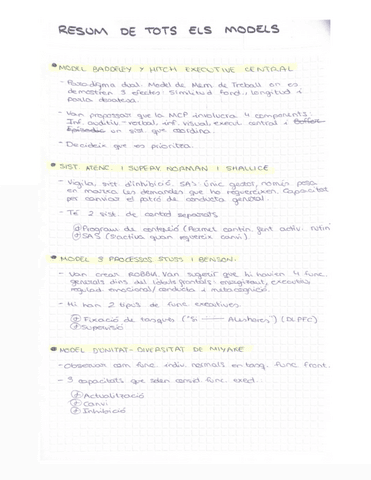 RESUM DE TOTS ELS MODELS
MODEL BADDELEY Y HITCH EXECUTIVE CENTRAL
- Paradigma dual. Model de Mem de Treball on es
demostren 3 efectes: Similitud fono., longitud i
parla
- Van proposar que la MCP involucra 4 components.
Inf. auditiu-verbal, inf. visual, execut. central i Buffer
Episodic on sist. que coordina.
- Decideix que es prioritza.
SIST. ATENC. I SUPERV. NORMAN I SHALLICE
- Vigila, sist. d'inhibició. SAS: únic gestor, només posa
en marxa les demandes que ho requereixen. Capacitat
per canviar el patró de conducta general.
- Té 2 sist. de control separats
Program de contenció (Permet contin. fent activ. rutin
SAS (S'activa quan requereix canvi).
MODEL 3 PROCESSOS STUSS I BENSON:
- Van crear ROBBIA. Van suggerir que hi havien 4 func.
generals dins del lòbuls frontals: energitzant, executiu
regulad. emocional/conducta i metacognició.
- Hi han 2 tipus de func. executives.
Fixació de tasques ("Si Aleshores") (DLPFC)
Supervisió
MODEL D'UNITAT-DIVERSITAT DE MIYAKE
- Observar com func. indiv. normals en tasq. func. front.
- 3 capacitats que són consid. func. exect.
Actualització
Canvi
Inhibició